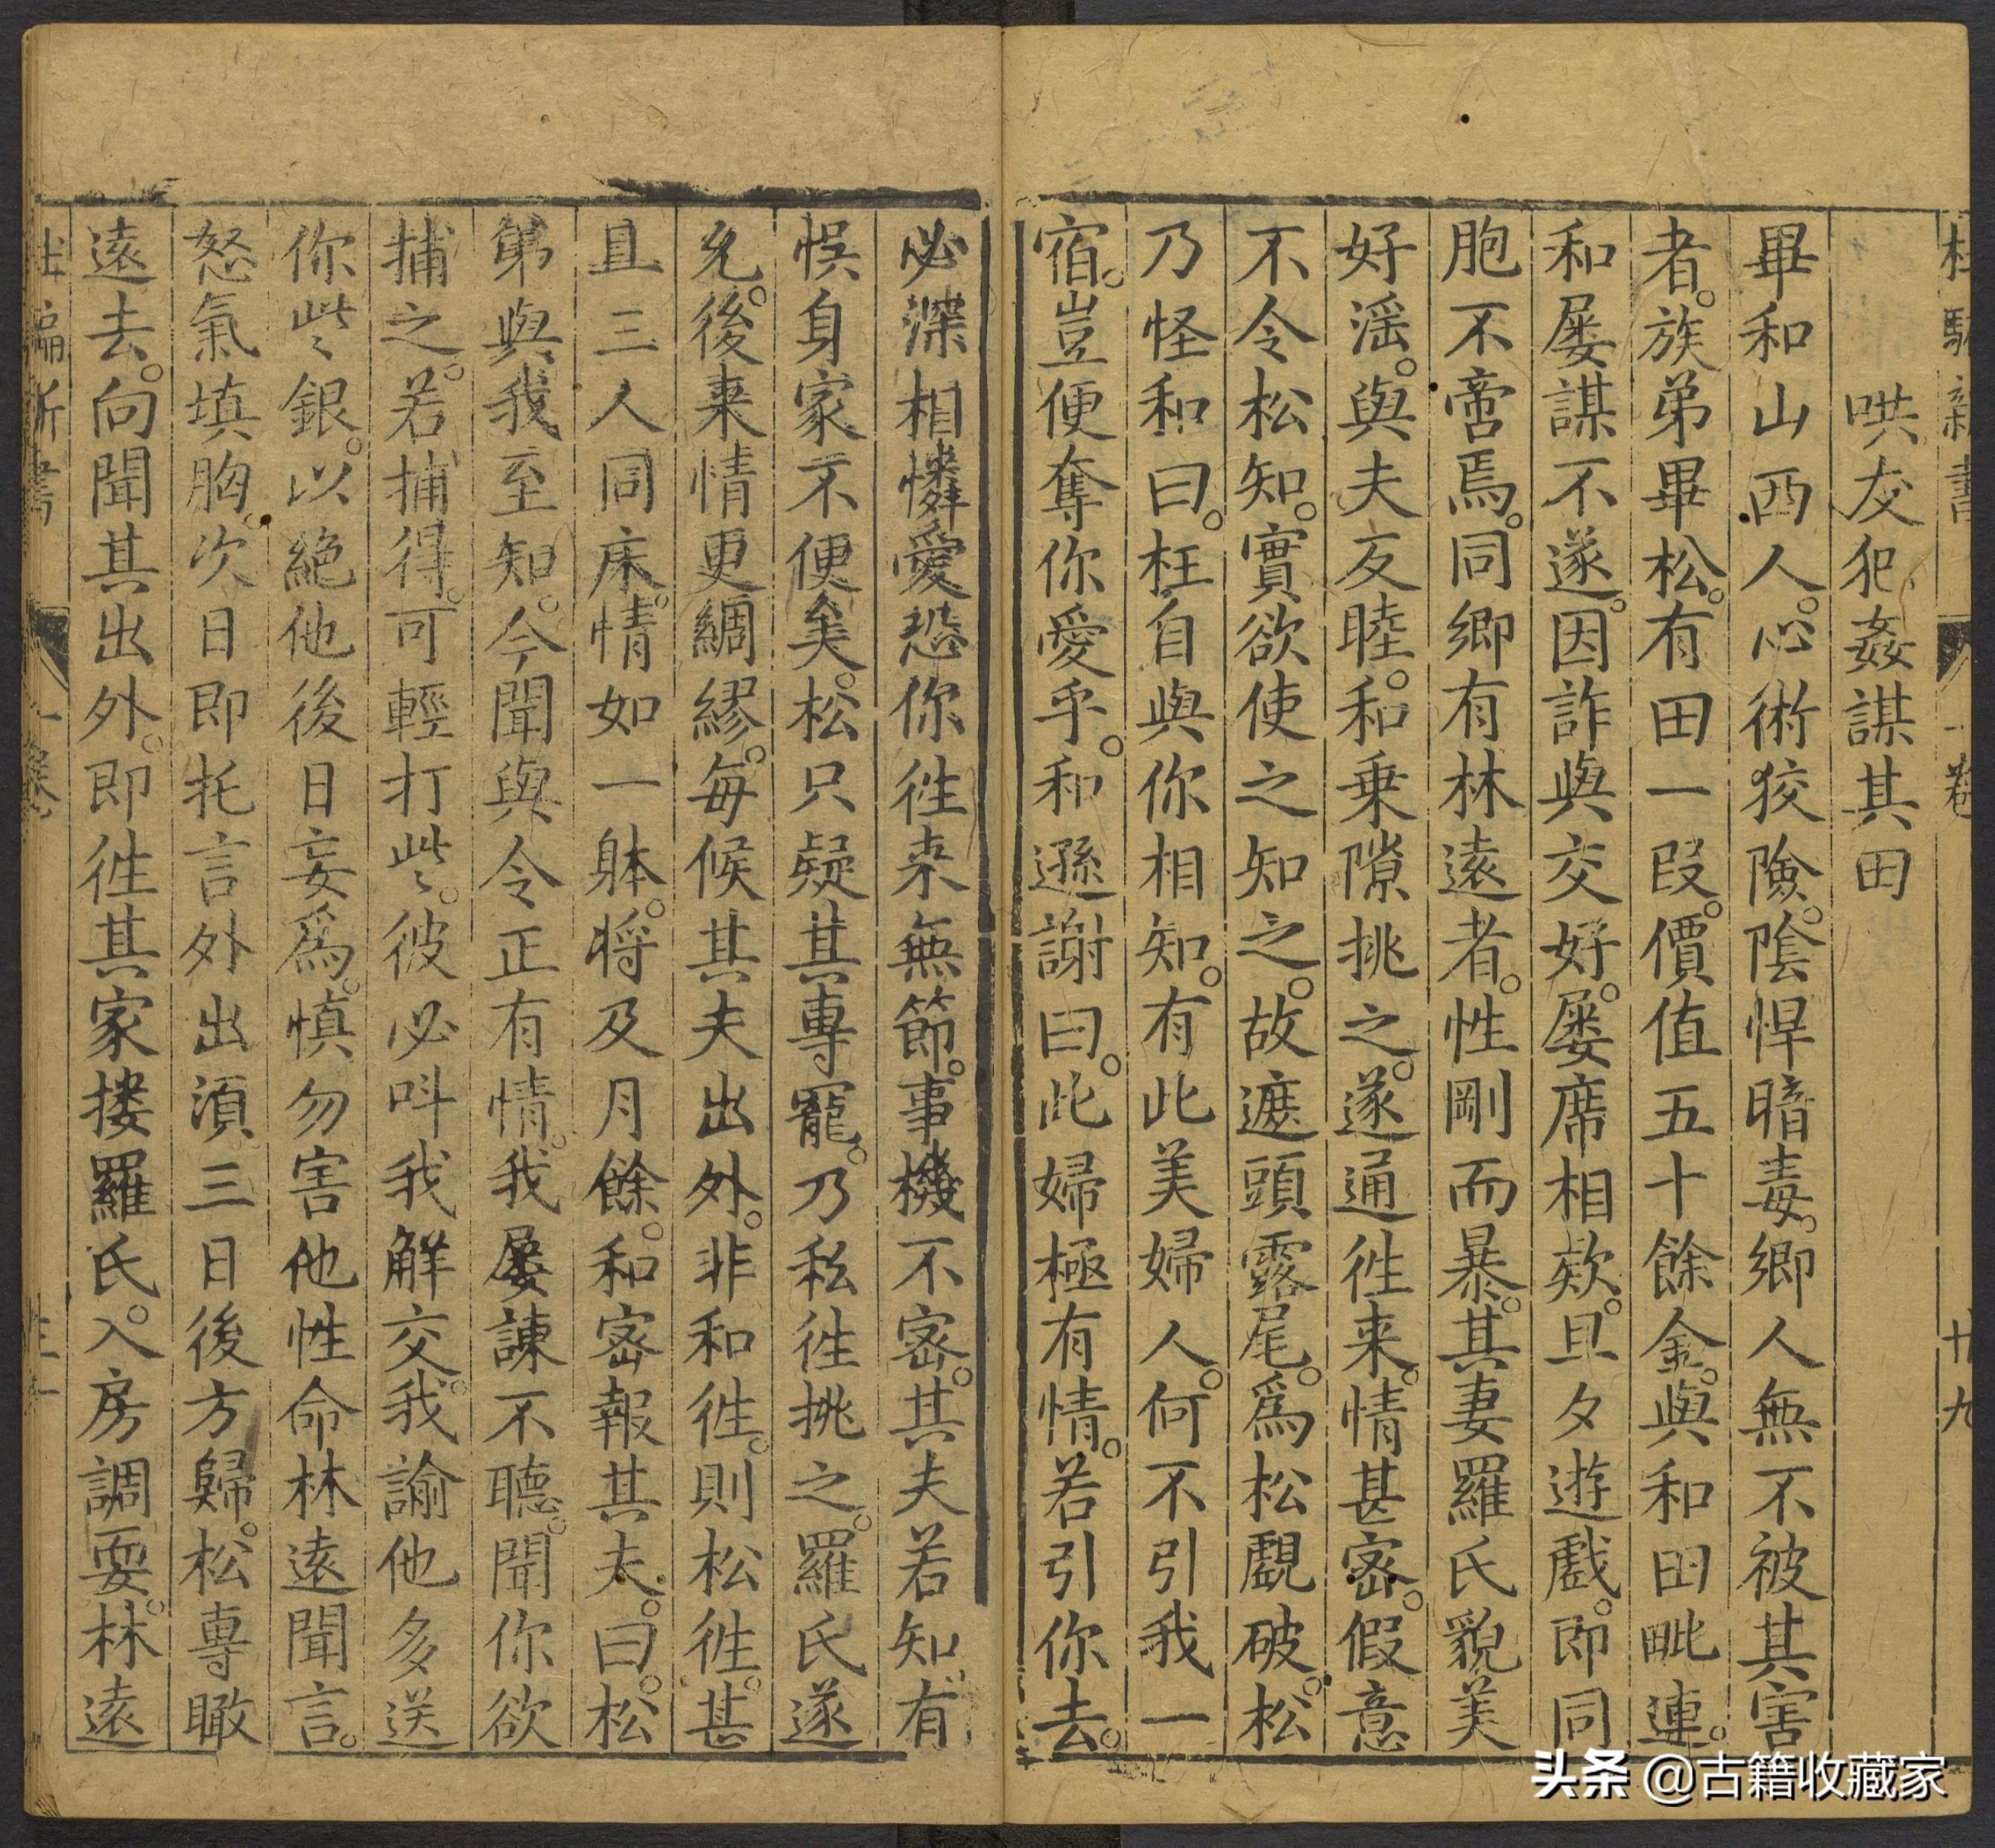 杜騙新書 一卷 十九
哄友犯姦謀其田
畢和山西人。心術狡險。陰悍暗毒。鄉人無不被其害
者。族弟畢松。有田一段。價值五十餘金。與和田毗連。
和屡謀不遂。因詐與交好。屡席相欵。旦夕遊戲。即同
胞不啻焉。同鄉有林遠者。性剛而暴。其妻羅氏貌美
好滛。與夫友睦。和乗隙挑之。遂通徃来。情甚宻。假意
不令松知。實欲使之知之。故遮頭露尾。爲松覷破。松
乃怪和曰。枉自與你相知。有此美婦人。何不引我一
宿。豈便奪你愛乎。和遜謝曰。此婦極有情。若引你去。
必深相憐愛恐你徃来無節。事機不宻。其夫若知。有
悞身家不便矣。松只疑其專寵。乃私徃挑之。羅氏遂
允。後来情更綢繆。每候其夫出外。非和徃。則松徃。甚
且三人同床。情如一躰。将及月餘。和宻報其夫。曰。松
弟與我至知。今聞與令正有情。我屡諫不聽。聞你欲
捕之。若捕得。可輕打些。彼必呌我解交。我諭他多送
你些銀。以絕他後日妄爲。慎勿害他性命林遠聞言。
怒氣填胸。次日即托言外出湏三日後方歸。松專瞰
遠去。向聞其出外。即徃其家摟羅氏。入房調耍。林遠
杜騙新書 一卷